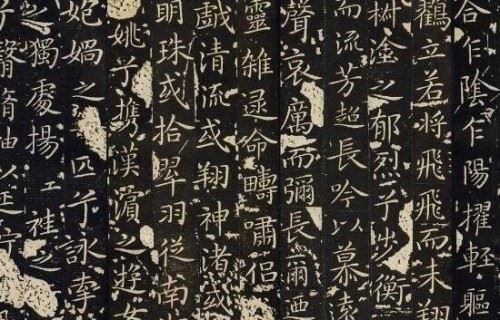 合乍陰乍陽擢輕軀
立若將飛飛而未翔
椒塗之郁烈兮步衡
而流芳超長吟以慕遠
聲哀厲而彌長爾迺
靈雜遝命疇嘯侶
戲清流或翔神渚或
明珠或拾翠羽從南
姚兮攜漢濱之遊女
妃媧之匹兮詠牽
之獨處揚袿之
翳脩袖以延